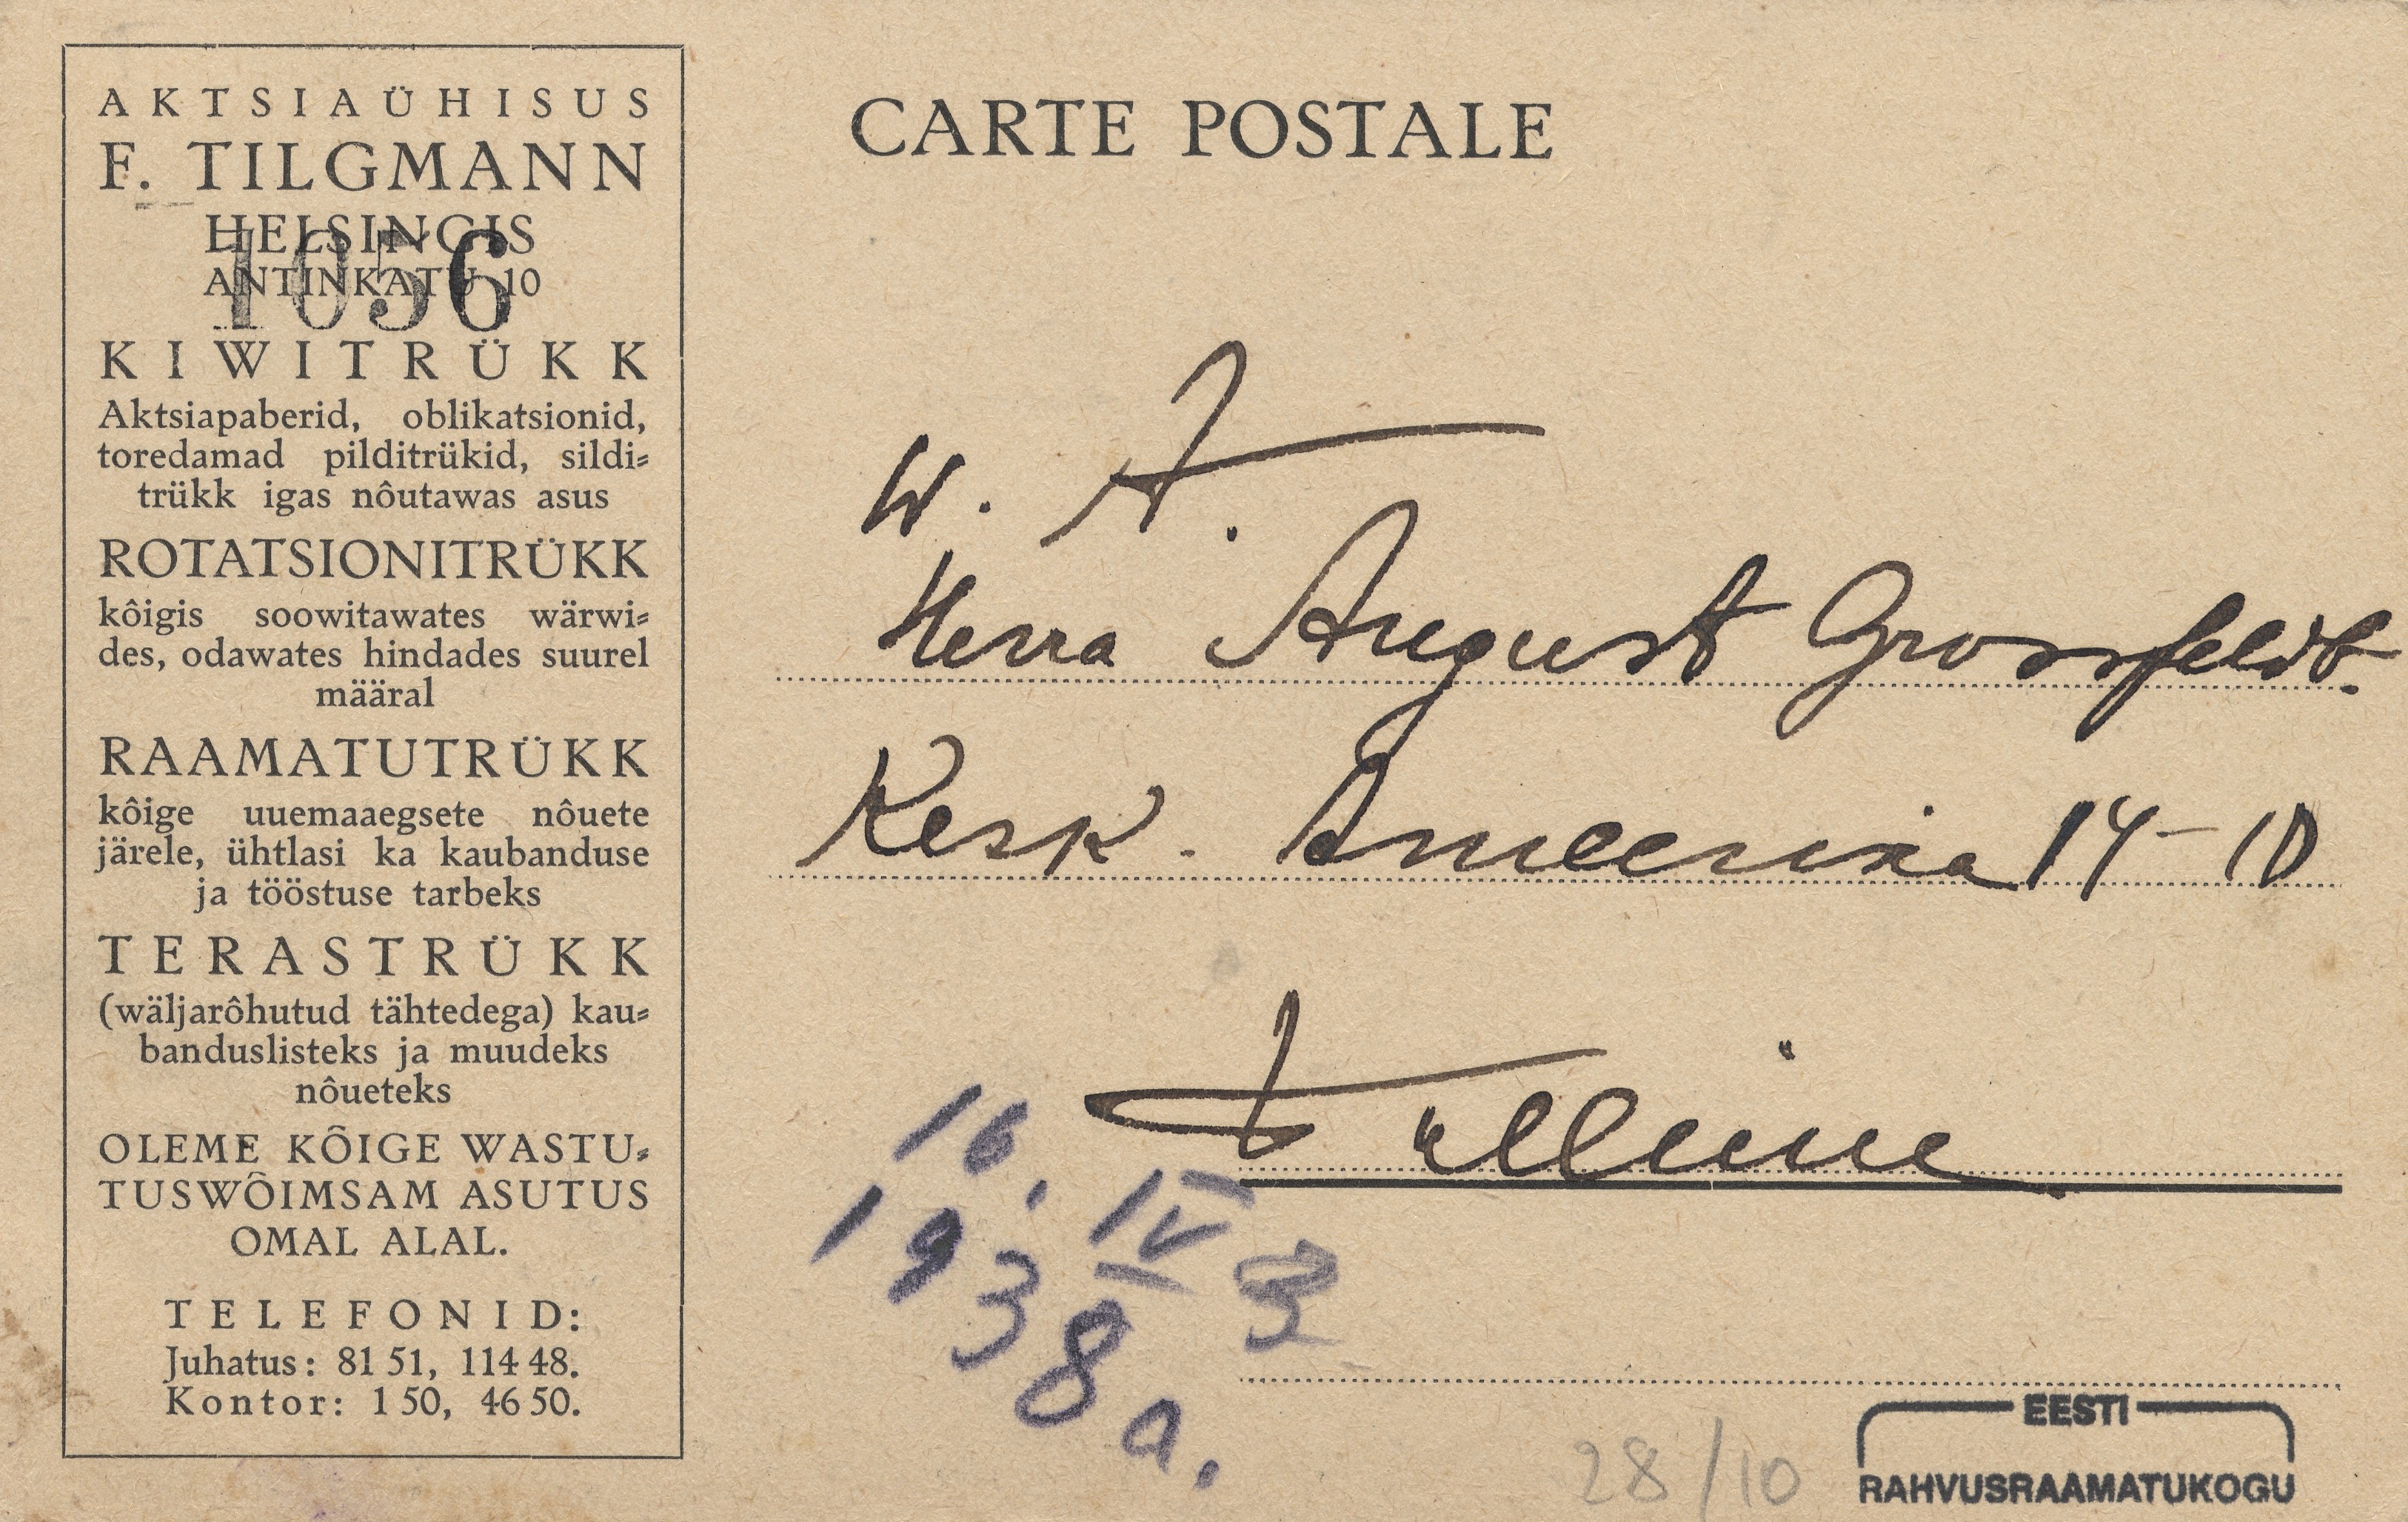 AKTSIAÜHISUS
F. TILGMANN
HELSINGIS
1056
ANTINKATU 10
KIWITRÜKK
Aktsiapaberid, oblikatsionid,
toredamad pilditrükid, sildi-
trükk igas nôutawas asus
ROTATSIONITRÜKK
kôigis soowitawates wärwi-
des, odawates hindades suurel
määral
RAAMATUTRÜKK
kôige uuemaaegsete nôuete
järele, ühtlasi ka kaubanduse
ja tööstuse tarbeks
TERASTRÜKK
(wäljarôhutud tähtedega) kau-
banduslisteks ja muudeks
nôueteks
OLEME KÔIGE WASTU-
TUSWÔIMSAM ASUTUS
OMAL ALAL.
TELEFONID:
Juhatus: 81 51, 114 48.
Kontor: 1 50, 46 50.
CARTE POSTALE
W. A.
Herra August Grossfeldt.
Kesk. Ameerika 14-10
Tallinn
16. IV
1938 a.
28/10
EESTI
RAHVUSRAAMATUKOGU